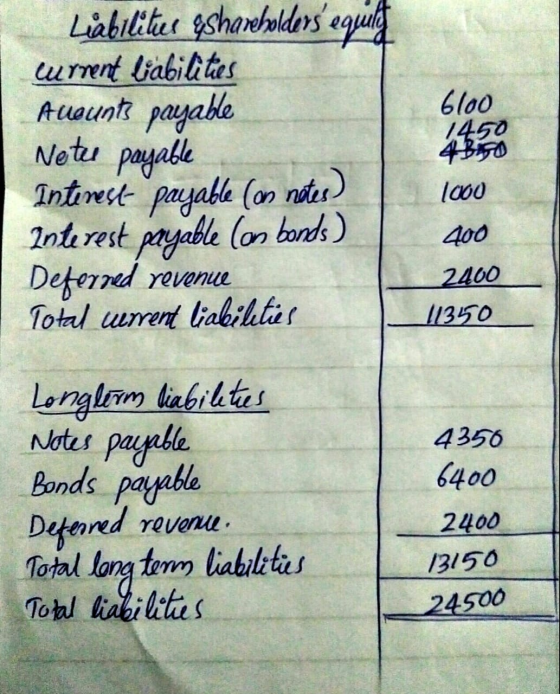 Liabilities & Shareholders' equity
current liabilities
Accounts payable 6100
1450
Notes payable 4350
Interest payable (on notes) 1000
Interest payable (on bonds) 400
Deferred revenue 2400
Total current liabilities 11350
Longterm liabilities
Notes payable 4350
Bonds payable 6400
Deferred revenue. 2400
Total long term liabilities 13150
Total liabilities 24500